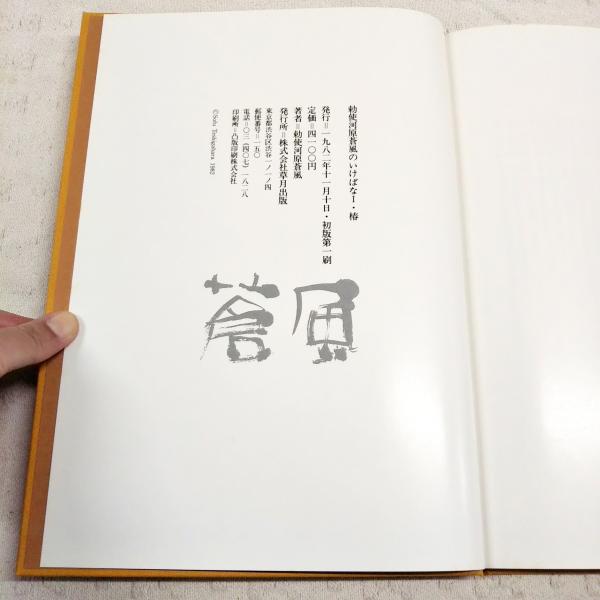 勅使河原蒼風のいけばなⅠ・椿
発行＝一九八二年十一月十日・初版第一刷
定価＝四一〇〇円
著者＝勅使河原蒼風
発行所＝株式会社草月出版
東京都渋谷区渋谷一ノ一ノ四
郵便番号＝一五〇
電話＝〇三(四〇七)一八二八
印刷所＝凸版印刷株式会社
©Sofu Teshigahara 1982
蒼風